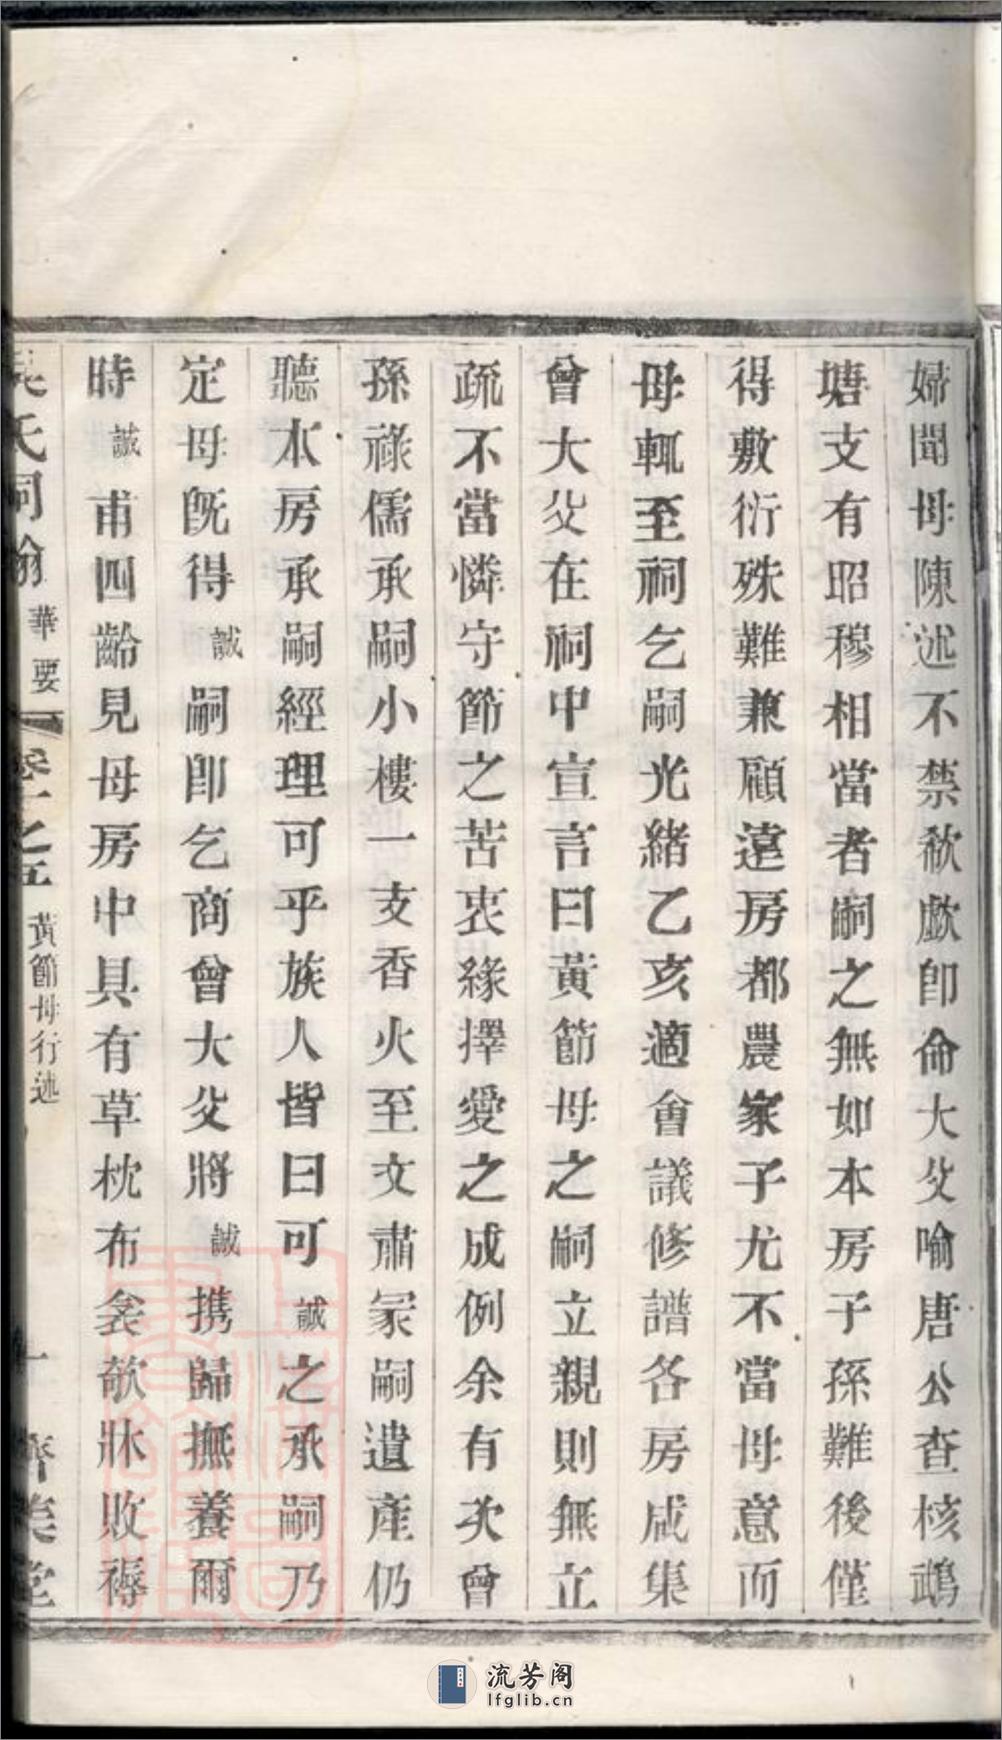 婦聞母陳述不禁欷歔卽命大父喻唐公查核鵡
塘支有昭穆相當者嗣之無如本房子孫難後僅
得敷衍殊難兼顧遠房都農家子尤不當母意而
母輒至祠乞嗣光緒乙亥適會議修譜各房咸集
曾大父在祠中宣言曰黃節母之嗣立親則無立
疏不當憐守節之苦衷緣擇愛之成例余有次曾
孫祿儒承嗣小樓一支香火至文肅冢嗣遺產仍
聽本房承嗣經理可乎族人皆曰可誠之承嗣乃
定母旣得誠嗣卽乞商曾大父將誠携歸撫養爾
時誠甫四齡見母房中具有草枕布衾欹牀敗褥
氏祠 華要 卷十之五 黃節母行述 堂
流芳阁
lfglib.cn